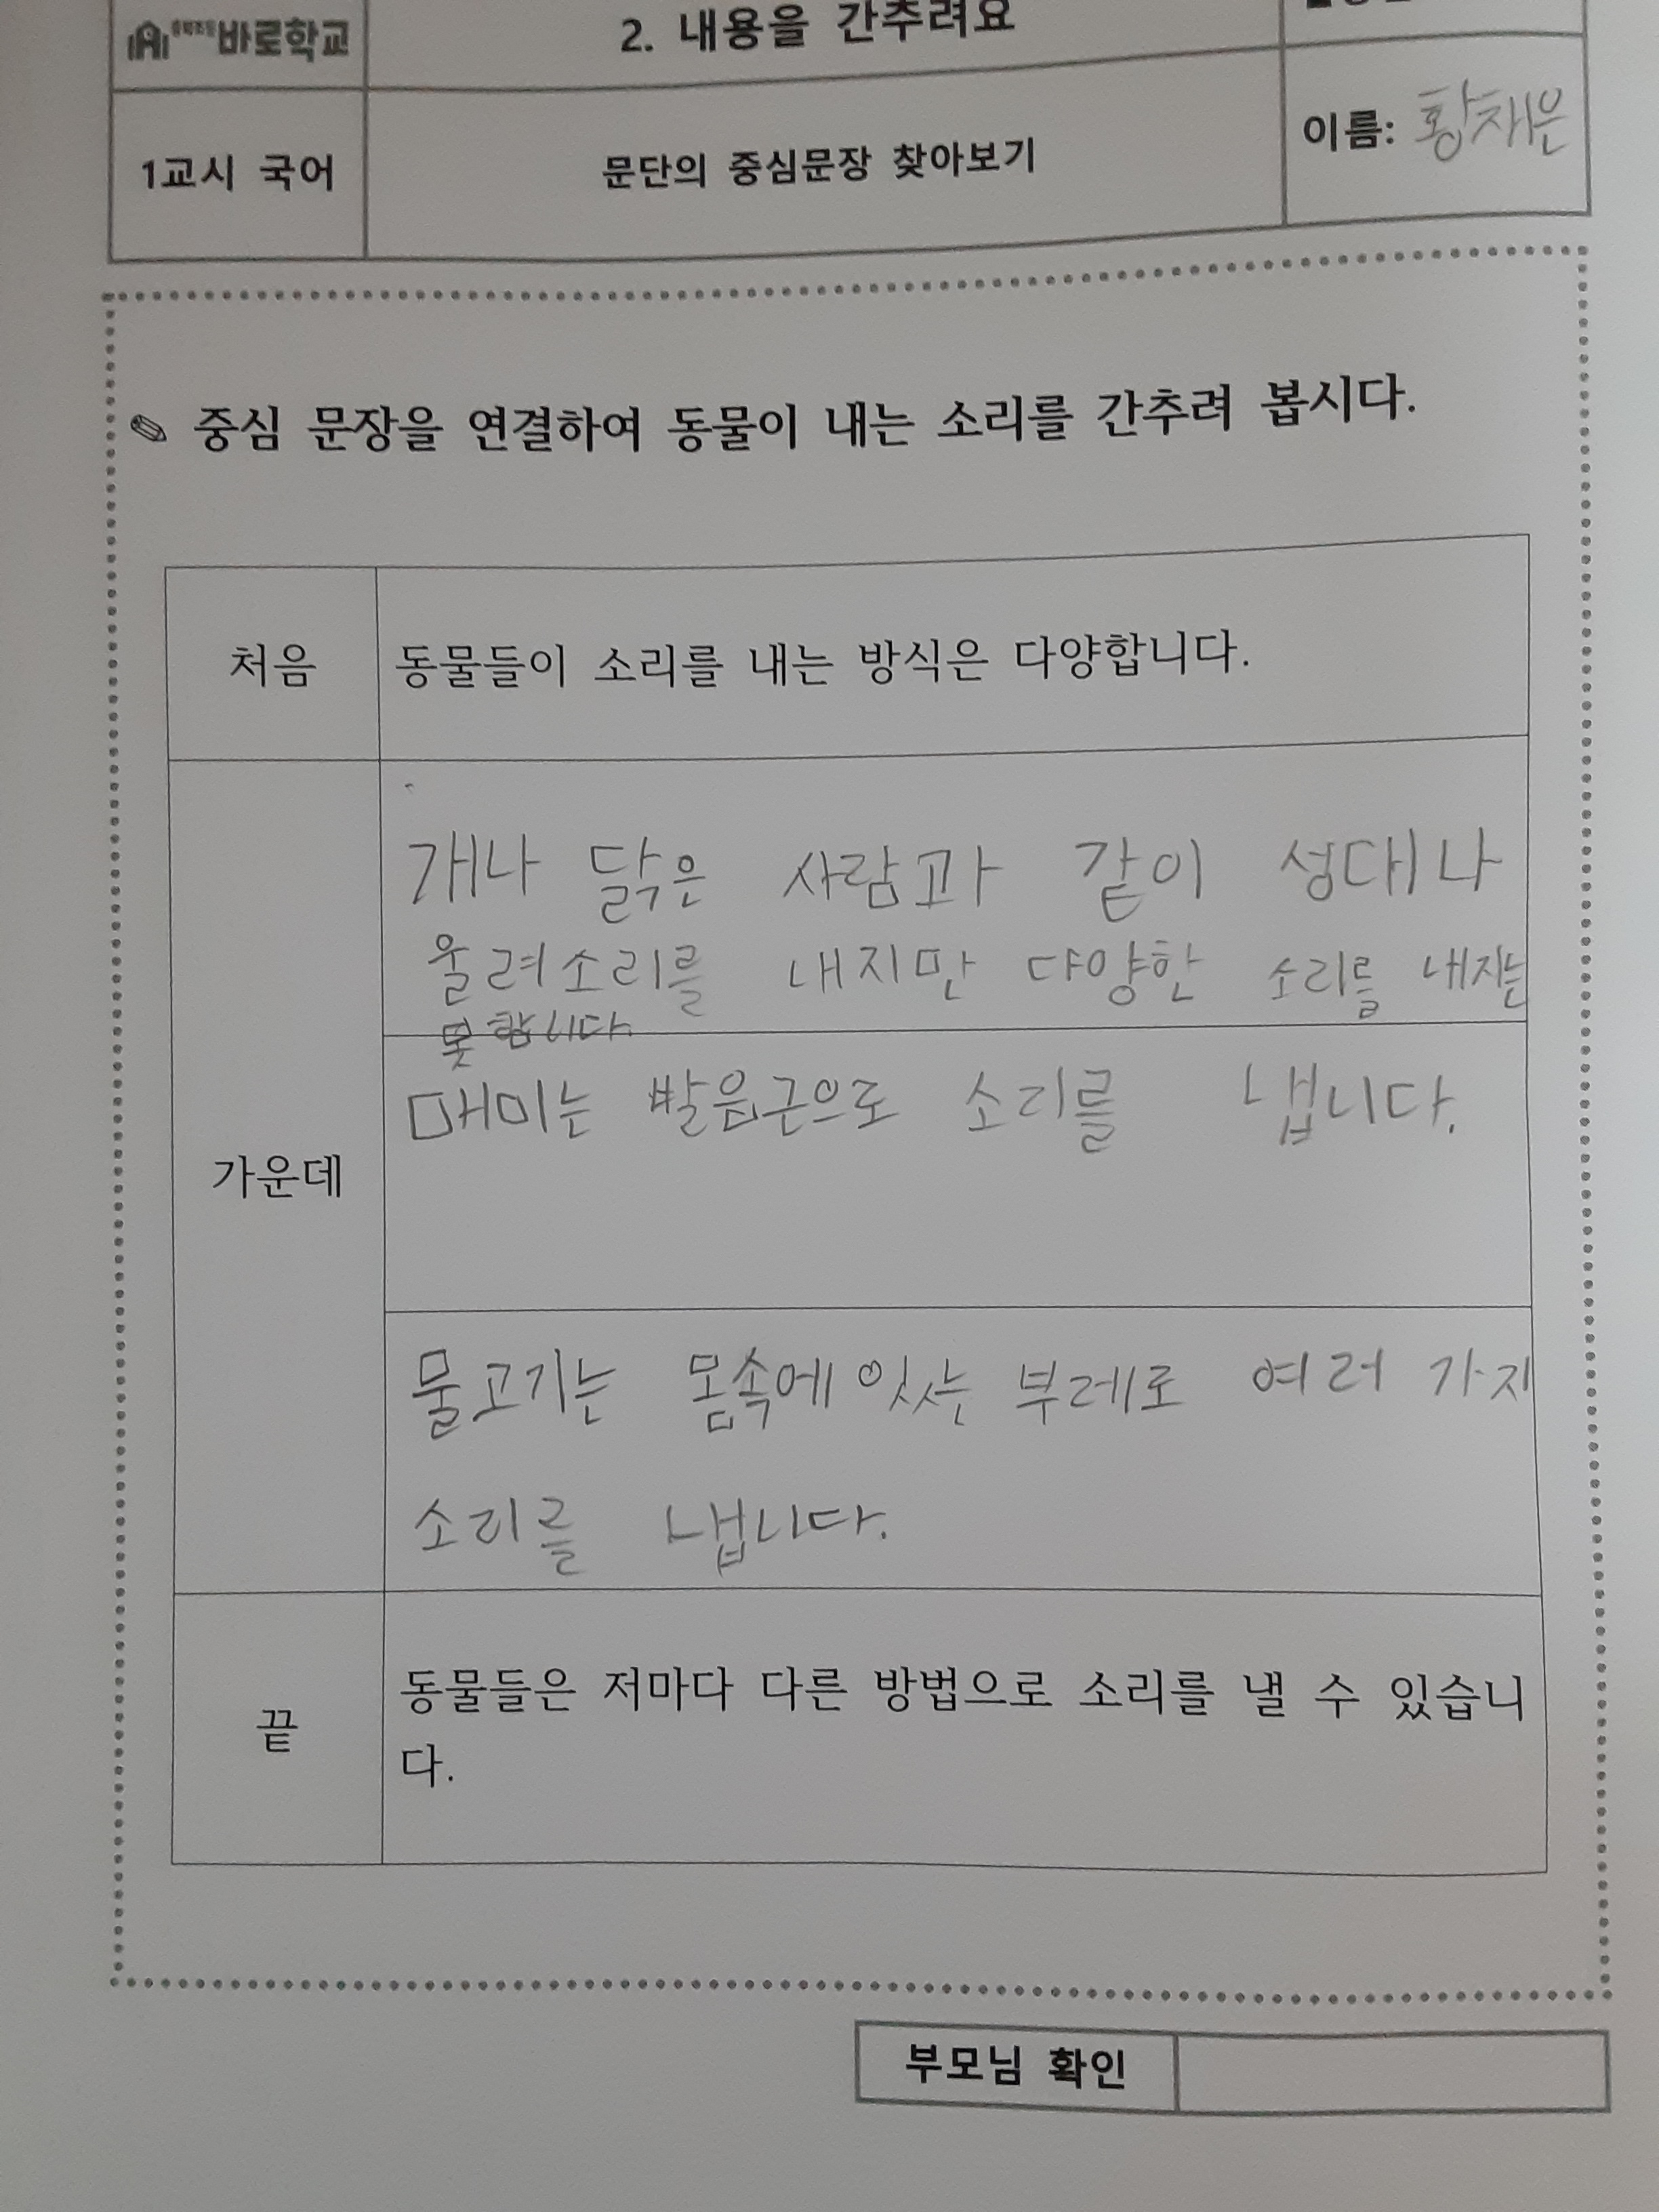 바로학교
2. 내용을 간추려요
1교시 국어
문단의 중심문장 찾아보기
이름: 황채은
✎ 중심 문장을 연결하여 동물이 내는 소리를 간추려 봅시다.
처음
동물들이 소리를 내는 방식은 다양합니다.
가운데
개나 닭은 사람과 같이 성대나
울려소리를 내지만 다양한 소리를 내지는
못합니다
매미는 발음근으로 소리를 냅니다.
물고기는 몸속에 있는 부레로 여러 가지
소리를 냅니다.
끝
동물들은 저마다 다른 방법으로 소리를 낼 수 있습니
다.
부모님 확인